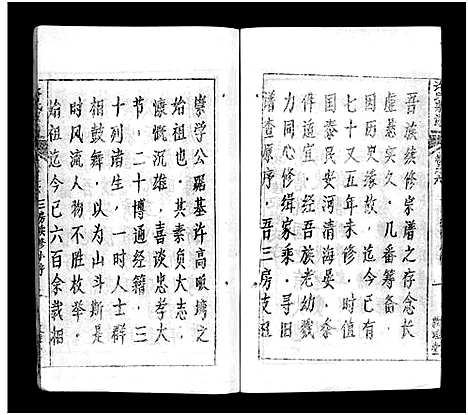 吾族续修宗谱之存念长
虚悬实久，几番筹备，
因历史缘故，迄今已有
七十又五年未修，时值
国泰民安河清海晏，禾
停均适宜，经吾族老幼戮
力同心修缉家乘，寻旧
谱查原序，吾三房支祖
崇学公蹈基许高畈塆之
始祖也，其素负大志，
慷慨沉雄，喜谈忠孝大
节，二十博通经籍，三
十列诸生，一时人士群
相鼓舞，以为山斗斯是
时风流人物不胜枚举，
始祖迄今已六百余载相